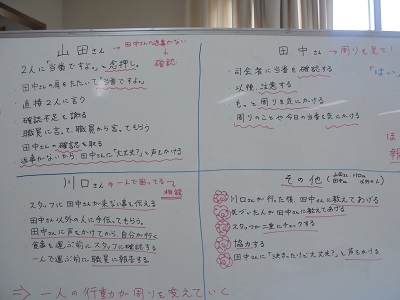 山田さん → 田中さんの返事がない
↓
確認
・2人に「当番ですよ。」と念押し。
・田中さんの肩をたたいて「当番ですよ。」
・直接2人に言う
・確認不足を謝る
・職員に言って、職員から言ってもらう
・田中さんの確認を取る
返事がないから、田中さんに「大丈夫？」と声をかける
田中さん → 周りを見て！
・司会者に当番を確認する
・以後、注意する
・もっと周りを気にかける
・周りのことや今日の当番を気にかける
「はい」
川口さん → 一人で困ってる
↓
相談
・スタッフに田中さんが来ない事を伝える
・田中さん以外の人に手伝ってもらう。
・田中さんに声をかけてから、自分が行く
・食事を運ぶ前にスタッフに確認する
・一人で運ぶ前に職員に報告する
その他
川口さんが行った後、田中さんに教えてあげる
気づいた人が田中さんに教えてあげる
スタッフが二重にチェックする
協力する
田中さんに「決まったけど大丈夫？」と声をかける
⇒ 一人の行動が周りを変えていく